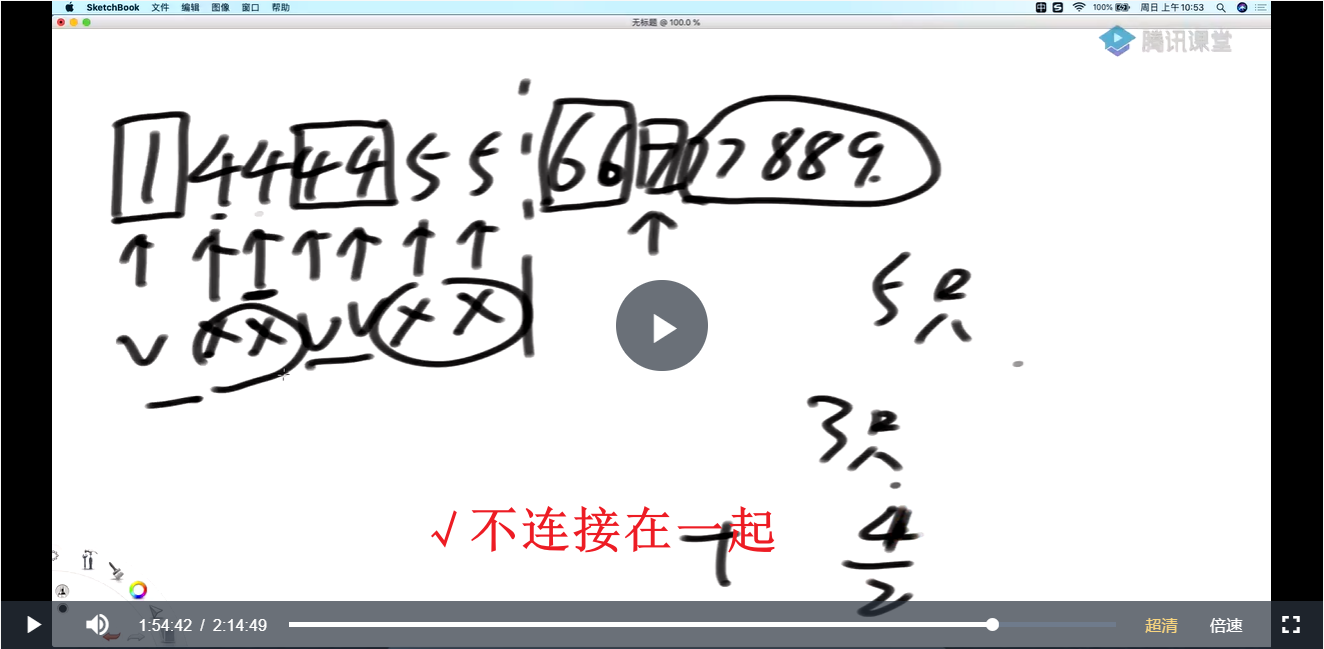 SketchBook 文件 编辑 图像 窗口 帮助 中 S 100% 周日 上午10:53
无标题 @ 100.0 %
腾讯课堂
1 4 4 4 4 5 5 6 6 7 7 7 8 8 9
v x x v v x x
5只
3只
√ 不连接在一起
4
2
1:54:42 / 2:14:49 超清 倍速